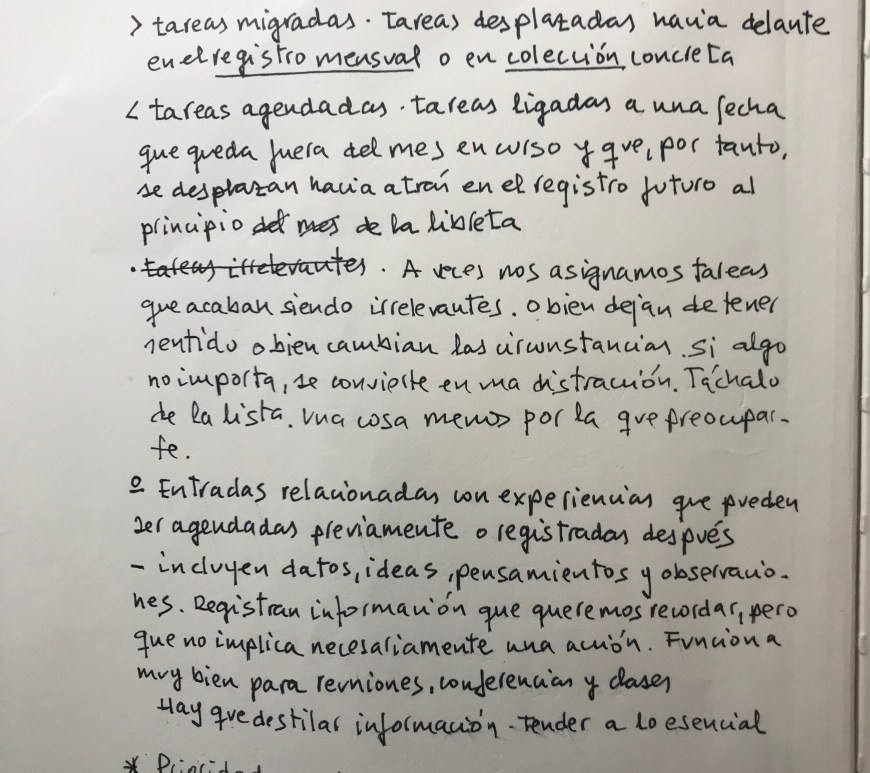 > tareas migradas. tareas desplazadas hacia delante
en el registro mensual o en colección concreta
< tareas agendadas. tareas ligadas a una fecha
que queda fuera del mes en curso y que, por tanto,
se desplazan hacia atrás en el registro futuro al
principio del mes de la libreta
· tareas irrelevantes. A veces nos asignamos tareas
que acaban siendo irrelevantes. O bien dejan de tener
sentido o bien cambian las circunstancias. Si algo
no importa, se convierte en una distracción. Táchalo
de la lista. Una cosa menos por la que preocupar-
te.
o Entradas relacionadas con experiencias que pueden
ser agendadas previamente o registradas después
- incluyen datos, ideas, pensamientos y observacio-
nes. Registran información que queremos recordar, pero
que no implica necesariamente una acción. Funciona
muy bien para reuniones, conferencias y clases
Hay que destilar información. tender a lo esencial
* Prioridad